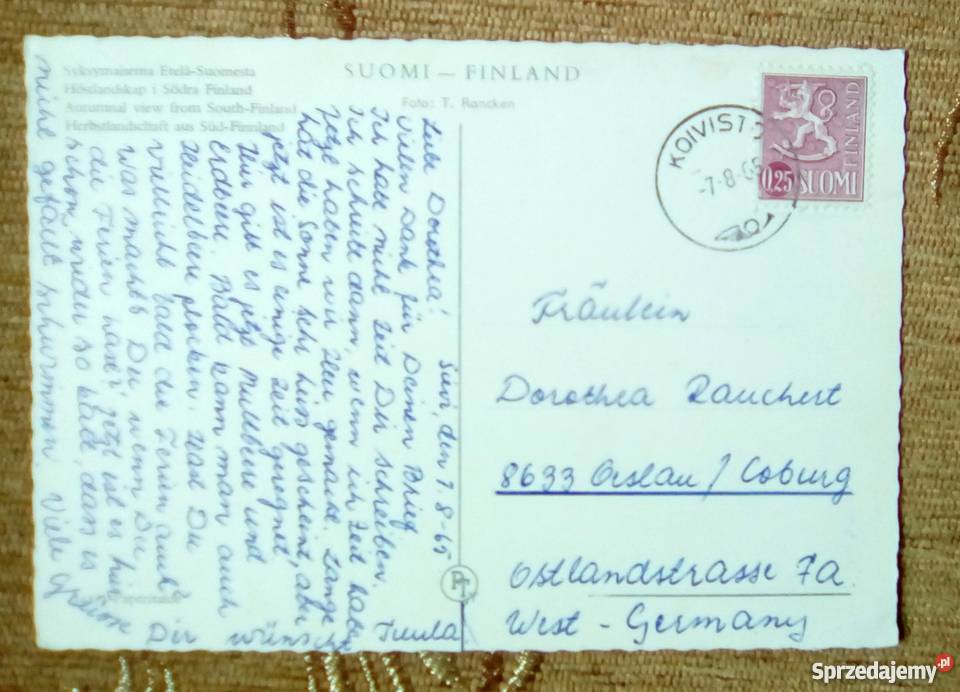 SUOMI — FINLAND
Syksymaisema Etelä-Suomesta
Höstlandskap i Södra Finland
Autumnal view from South-Finland
Herbstlandschaft aus Süd-Finnland
Foto: T. Rancken
FINLAND
0,25 SUOMI
KOIVISTO
-7-8-65
den 7.8-65
Liebe Dorothea!
Vielen Dank für Deinen Brief
Ich habe nicht Zeit Dir schreiben.
Ich schreibe dann, wenn ich Zeit habe
Jetzt haben wir Heu gemacht. Lange
hat die Sonne sehr heiss gescheint, aber
jetzt ist es einige Zeit geregnet
Hier gibt es jetzt Multbeere und
Erdbeere. Bald kann man auch
Heidelbeere pflocken. Hast Du
vielleicht bald die Ferien auch?
was machst Du wenn Du
die Ferien hast? Jetzt ist es hier
schon wieder so kalt, dass es
nicht gefällt schwimmen. Viele Grüsse
Dir wünscht Tuula
Fräulein
Dorothea Rauchert
8633 Oeslau / Coburg
Ostlandstrasse 7a
West - Germany
PT
Sprzedajemy.pl